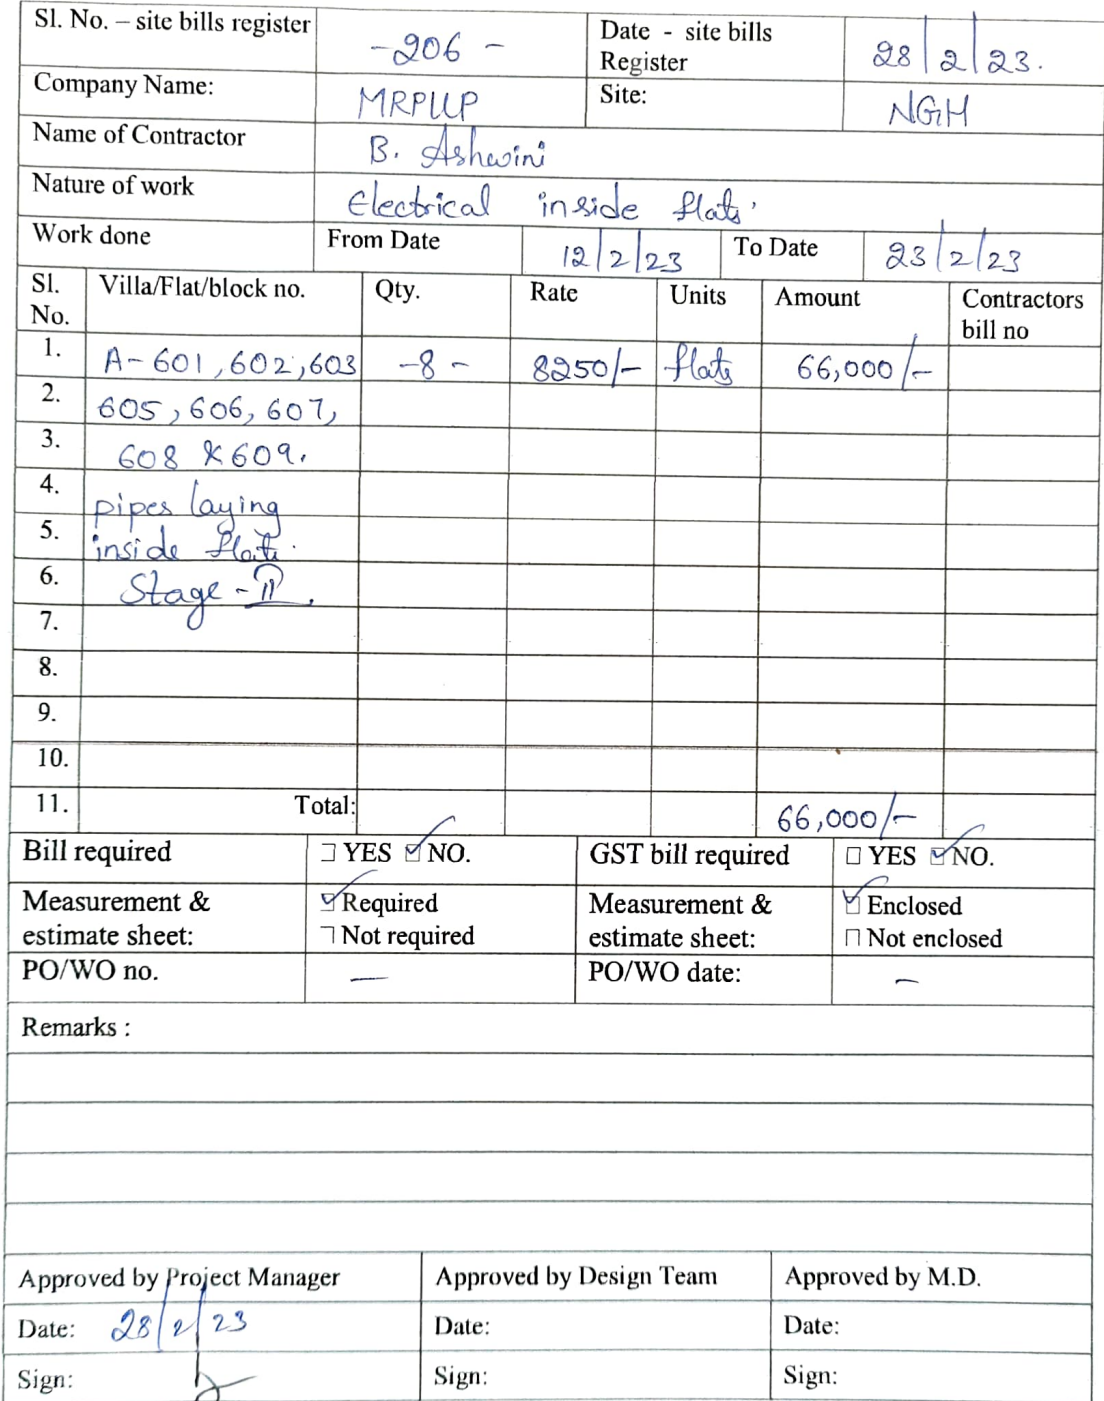 Sl. No. – site bills register -206- Date - site bills Register 28/2/23.
Company Name: MRPLLP Site: NGH
Name of Contractor B. Ashwini
Nature of work Electrical inside flats.
Work done From Date 12/2/23 To Date 23/2/23
Sl. No. Villa/Flat/block no. Qty. Rate Units Amount Contractors bill no
1. A-601,602,603 -8- 8250/- flats 66,000/-
2. 605, 606, 607,
3. 608 & 609.
4. pipes laying
5. inside flats.
6. Stage - II.
7.
8.
9.
10.
11. Total: 66,000/-
Bill required ☐ YES ☑ NO. GST bill required ☐ YES ☑ NO.
Measurement & estimate sheet: ☑ Required ☐ Not required Measurement & estimate sheet: ☑ Enclosed ☐ Not enclosed
PO/WO no. — PO/WO date: –
Remarks :
Approved by Project Manager Approved by Design Team Approved by M.D.
Date: 28/2/23 Date: Date:
Sign: Sign: Sign: